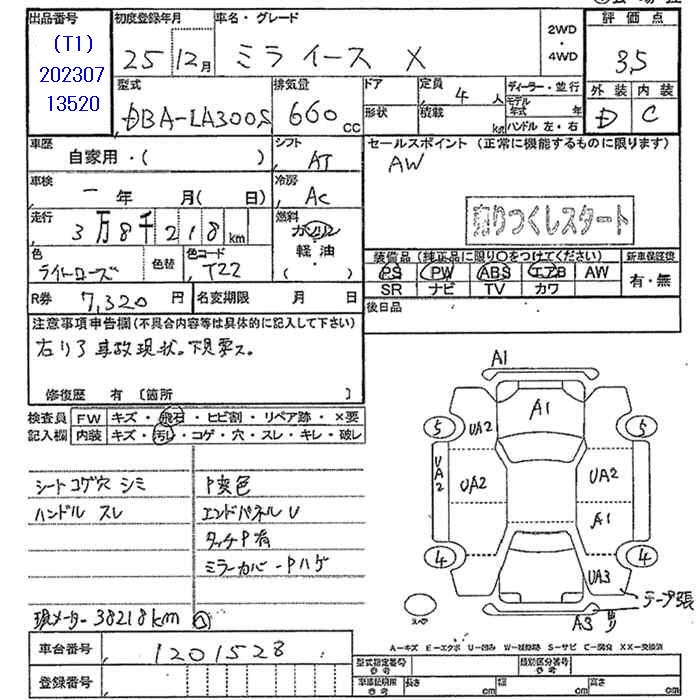 出品番号
(T1)
202307
13520
初度登録年月
25 12月
車名・グレード
ミライース X
2WD
・
4WD
評価点
3.5
外装 内装
D C
型式
DBA-LA300S
排気量
660 cc
ドア
形状
定員
4 人
積載
kg
ディーラー・並行
モデル
年式 年
ハンドル 左・右
車歴
自家用・( )
シフト
AT
セールスポイント (正常に機能するものに限ります)
AW
売りつくしスタート
車検
一 年 月( 日)
冷房
AC
走行
3万8千218km
燃料
ガソリン
軽油
( ・ )
色
ライトローズ
色替
色コード
T22
装備品 (純正品に限り○をつけてください)
PS PW ABS エアB AW
SR ナビ TV カワ
新車保証書
有・無
R券 7,320 円
名変期限 月 日
後日品
注意事項申告欄(不具合内容等は具体的に記入して下さい)
右リア事故現状。下見要ス。
修復歴 有 〔箇所 〕
検査員
記入欄
FW キズ・飛石・ヒビ割・リペア跡・×要
内装 キズ・汚レ・コゲ・穴・スレ・キレ・破レ
シートコゲ穴 シミ
ハンドル スレ
P変色
エンドパネルU
タッチP有
ミラーカバーPハゲ
現メーター 38218km
A1
A1
5
5
UA2
UA2
UA2
UA2
A1
4
4
UA3
テープ張り
A3
スペア
A−キズ E−エクボ U−凹み W−補修跡 S−サビ C−腐食 XX−交換済
車台番号
1201528
登録番号
型式指定番号
参考
類別区分番号
参考
車庫証明用
参考
長さ cm
幅 cm
高さ cm